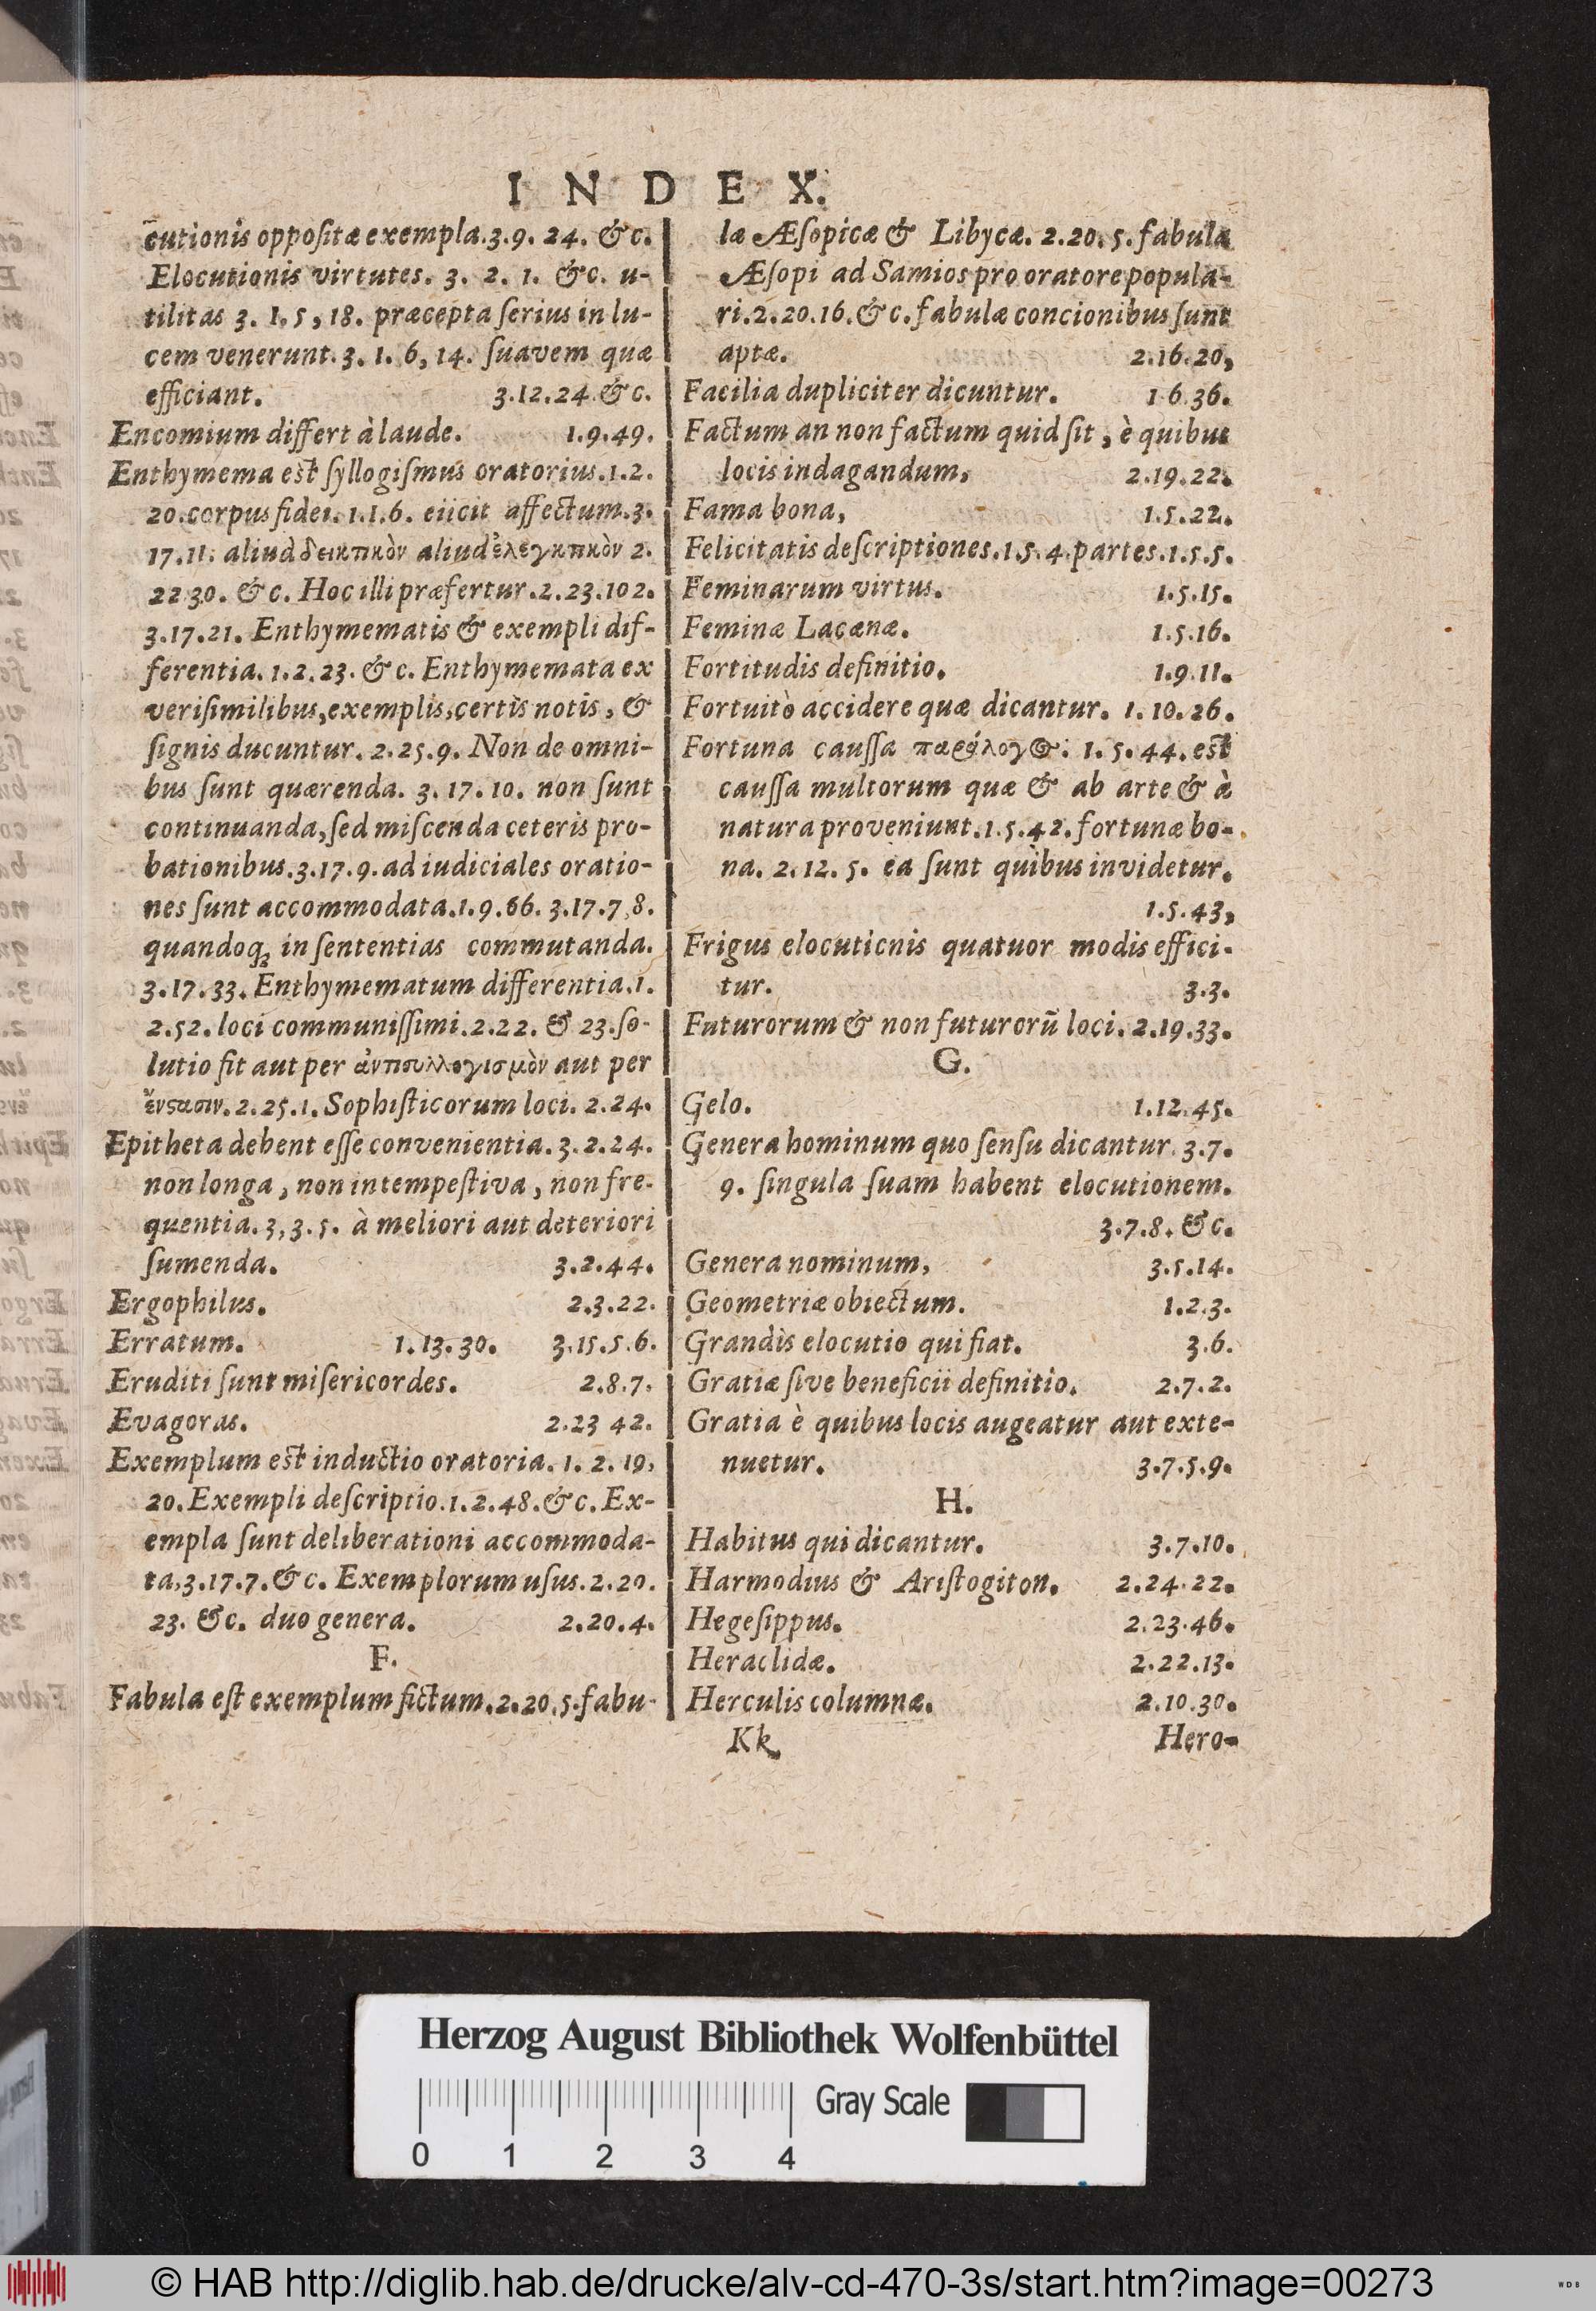 INDEX.
cutionis oppoſitæ exempla.3.9. 24. &c.
Elocutionis virtutes. 3. 2. 1. &c. u-
tilitas 3. 1.5, 18. præcepta ſerius in lu-
cem venerunt. 3. 1. 6, 14. ſuavem quæ
efficiant. 3.12.24.&c.
Encomium differt à laude. 1.9.49.
Enthymema est ſyllogiſmus oratorius.1.2.
20.corpus fidei. 1.1.6. eiicit affectum.3.
17.11. aliud δεικτικὸν aliud ἐλεγκτικὸν 2.
22 30. &c. Hoc illi præfertur.2.23.102.
3.17.21. Enthymematis & exempli dif-
ferentia. 1.2.23. &c. Enthymemata ex
veriſimilibus,exemplis,certis notis, &
ſignis ducuntur. 2.25.9. Non de omni-
bus ſunt quærenda. 3. 17. 10. non ſunt
continuanda,ſed miſcenda ceteris pro-
bationibus.3.17.9. ad iudiciales oratio-
nes ſunt accommodata.1.9.66. 3.17.7,8.
quandoq; in ſententias commutanda.
3.17.33. Enthymematum differentia.1.
2.52. loci communiſſimi.2.22. & 23.ſo-
lutio fit aut per ἀντισυλλογισμὸν aut per
ἔνστασιν. 2.25.1. Sophiſticorum loci. 2.24.
Epitheta debent eſſe convenientia. 3.2.24.
non longa, non intempeſtiva, non fre-
quentia. 3,3.5. à meliori aut deteriori
ſumenda. 3.2.44.
Ergophilus. 2.3.22.
Erratum. 1.13.30. 3.15.5.6.
Eruditi ſunt miſericordes. 2.8.7.
Evagoras. 2.23 42.
Exemplum est inductio oratoria. 1. 2. 19,
20. Exempli deſcriptio.1.2.48.&c. Ex-
empla ſunt deliberationi accommoda-
ta,3.17.7.&c. Exemplorum uſus.2.20.
23. &c. duo genera. 2.20.4.
F.
Fabula eſt exemplum fictum.2.20.5.fabu-
læ Æſopicæ & Libycæ. 2.20.5. fabula
Æſopi ad Samios pro oratore popula-
ri.2.20.16.&c.fabulæ concionibus ſunt
aptæ. 2.16.20,
Facilia dupliciter dicuntur. 1 6.36.
Factum an non factum quid ſit, è quibus
locis indagandum, 2.19.22.
Fama bona, 1.5.22.
Felicitatis deſcriptiones.1.5.4.partes.1.5.5.
Feminarum virtus. 1.5.15.
Feminæ Lacænæ. 1.5.16.
Fortitudis definitio. 1.9.11.
Fortuitò accidere quæ dicantur. 1.10.26.
Fortuna cauſſa παράλογος. 1.5.44. est
cauſſa multorum quæ & ab arte & à
natura proveniunt.1.5.42. fortunæ bo-
na. 2.12.5. ea ſunt quibus invidetur.
1.5.43,
Frigus elocutionis quatuor modis effici-
tur. 3.3.
Futurorum & non futurorū loci. 2.19.33.
G.
Gelo. 1.12.45.
Genera hominum quo ſenſu dicantur. 3.7.
9. ſingula ſuam habent elocutionem.
3.7.8. &c.
Genera nominum, 3.5.14.
Geometriæ obiectum. 1.2.3.
Grandis elocutio qui fiat. 3.6.
Gratiæ ſive beneficii definitio. 2.7.2.
Gratia è quibus locis augeatur aut exte-
nuetur. 3.7.5.9.
H.
Habitus qui dicantur. 3.7.10.
Harmodius & Ariſtogiton. 2.24.22.
Hegeſippus. 2.23.46.
Heraclidæ. 2.22.13.
Herculis columnæ. 2.10.30.
Kk Hero-
Herzog August Bibliothek Wolfenbüttel
Gray Scale
0 1 2 3 4
© HAB http://diglib.hab.de/drucke/alv-cd-470-3s/start.htm?image=00273
WDB